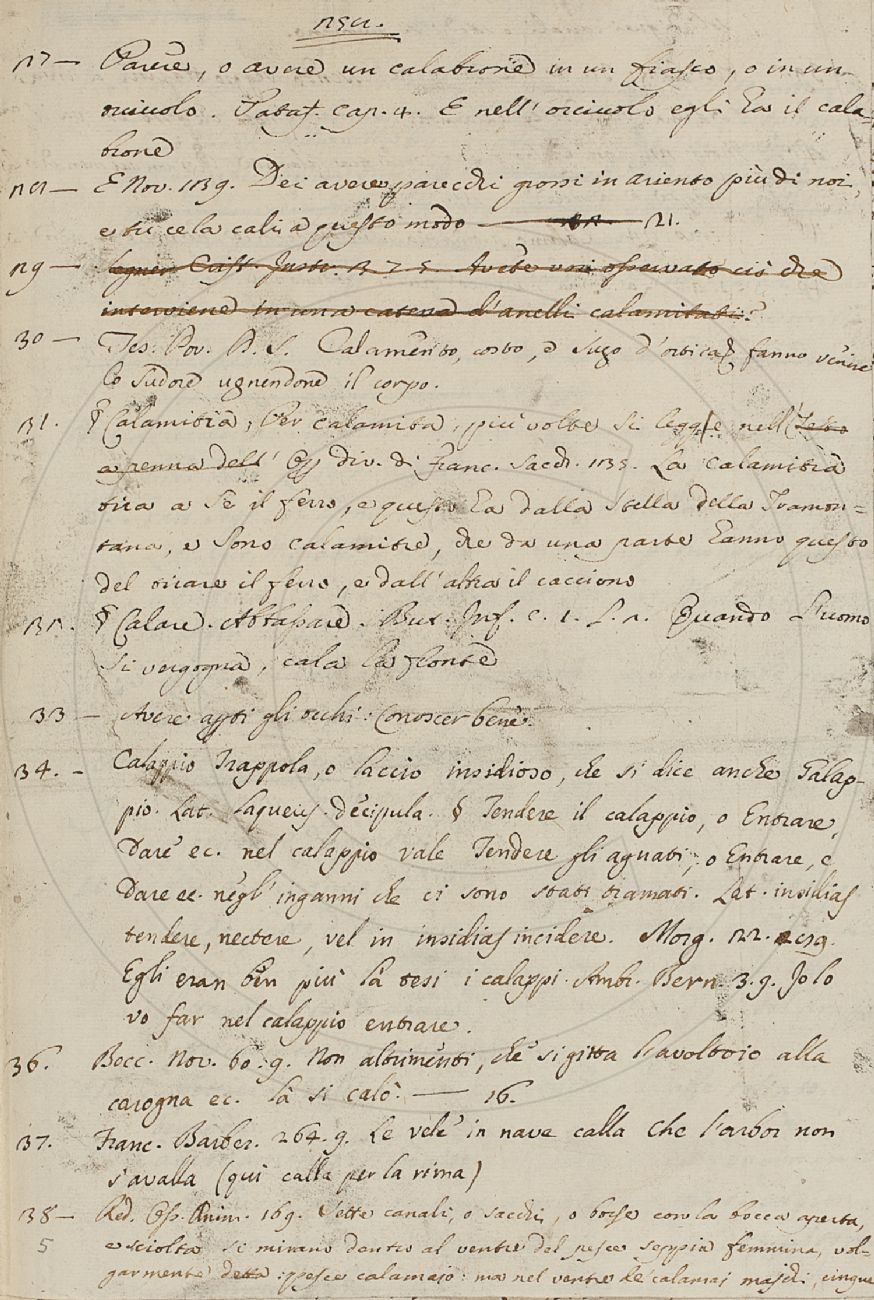 27 — Parere, o avere un calabrone in un fiasco, o in un
orciuolo. Pataf. cap. 4. E nell' orciuolo egli ha il cala-
brone
28 — E Nov. 139. Dei avere parecchi grossi in ariento più di noi,
e tu ce la cali a questo modo — 21.
29 — Segner. Crist. Instr. 3 25. Avete voi osservato ciò che
interviene in una catena d'anelli calamitati?
30 — Tes. Pov. P. S. Calamento, cotto, e sugo d'ortica fanno venire
lo sudore ugnendone il corpo.
31. § Calamitia, Per calamita, più volte si legge nell' Testo
a penna dell' Op. div. di Franc. Sacch. 135. La calamitia
tira a sè il ferro, e questo ha dalla Stella della Tramon=
tana, e sono calamitie, che da una parte hanno questo
del tirare il ferro, e dall' altra il cacciono
32. § Calare. Abbassare. But. Inf. c. 1. Quando l'uomo
si vergogna, cala la fronte
33 — Avere apti gli occhi: Conoscer bene.
34. — Calappio Trappola, o laccio insidioso, che si dice anche Galap-
pio. Lat. laqueus. decipula. § Tendere il calappio, o Entrare,
Dare ec. nel calappio vale Tendere gli aguati, o Entrare, e
Dare ec. negl' inganni che ci sono stati tramati. Lat. insidias
tendere, nectere, vel in insidias incidere. Morg. 22.
Egli eran ben più là tesi i calappi. Ambr. Bern. 3. 9. Io lo
vo far nel calappio entrare.
36. Bocc. Nov. 60. 9. Non altrimenti, che si gitta l'avoltoio alla
carogna ec. là si calò. — 16.
37. Franc. Barber. 264. 9. Le vele in nave calla Che l'arbor non
s'avalla (qui calla per la rima)
38 — Red. Oss. Anim. 169. Sette canali, o sacchi, o borse con la bocca aperta,
5 e sciolta si mirano dentro al ventre del pesce seppia femmina, vol-
garmente detta pesce calamaio: ma nel ventre de' calamai maschi, cinque